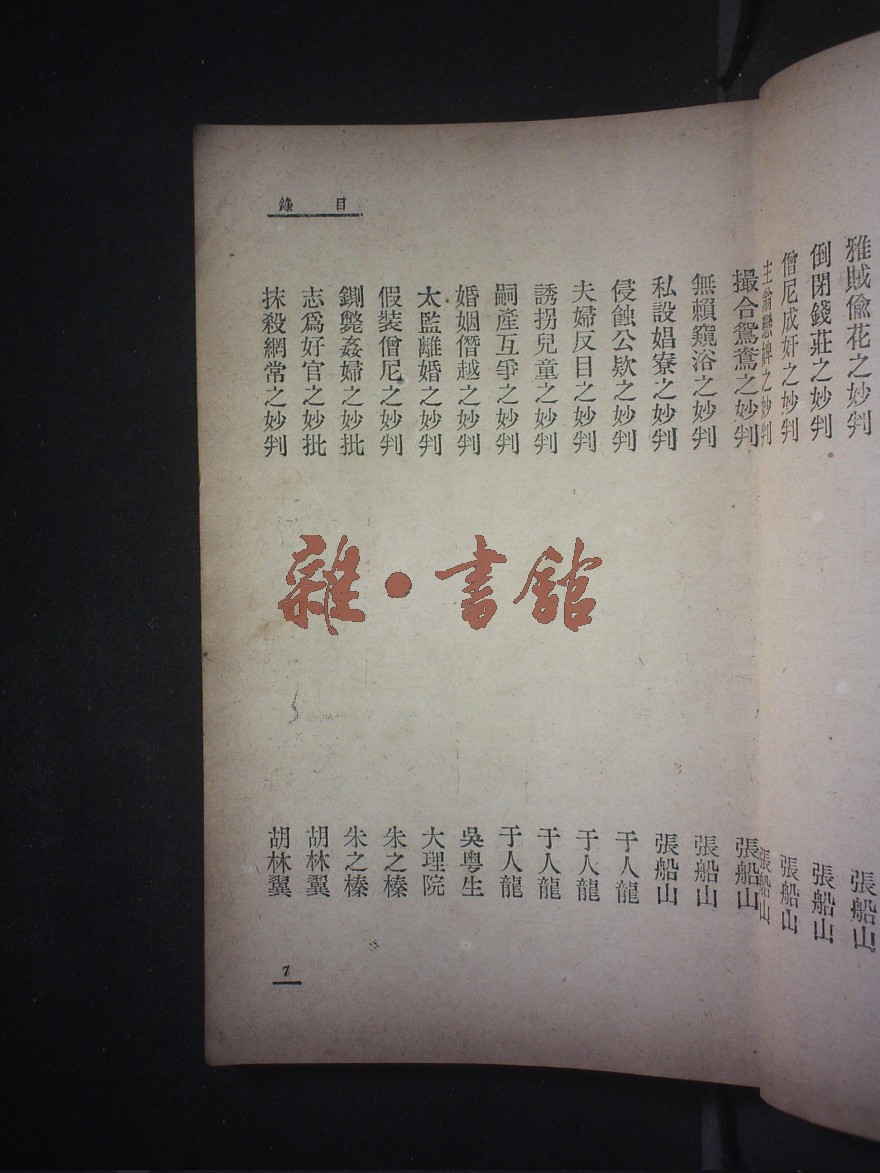 目錄
雅賊偸花之妙判 張船山
倒閉錢莊之妙判 張船山
僧尼成奸之妙判 張船山
主翁戀婢之妙判 張船山
撮合鴛鴦之妙判 張船山
無賴窺浴之妙判 張船山
私設娼寮之妙判 張船山
侵蝕公欵之妙判 于人龍
夫婦反目之妙判 于人龍
誘拐兒童之妙判 于人龍
嗣產互爭之妙判 于人龍
婚姻僭越之妙判 吳粵生
太監離婚之妙判 大理院
假裝僧尼之妙判 朱之榛
鍘斃姦婦之妙批 朱之榛
志爲好官之妙批 胡林翼
抹殺網常之妙判 胡林翼
7
雜·書館